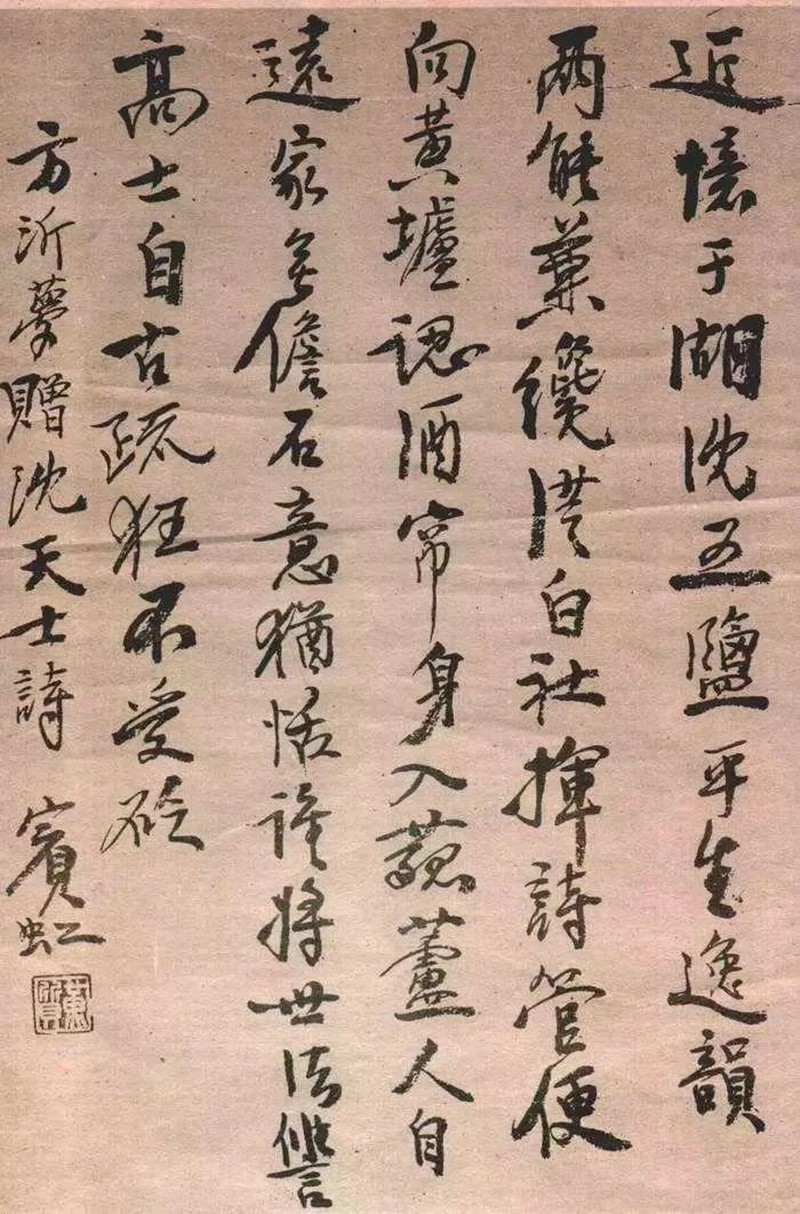 近憶于湖沈五鹽平生逸韻
兩能兼纔從白社揮詩管便
向黃壚認酒帘身入菰蘆人自
遠家無儋石意猶恬誰將世法讐
高士自古疏狂不受砭
方沂夢贈沈天士詩 賓虹
黃質